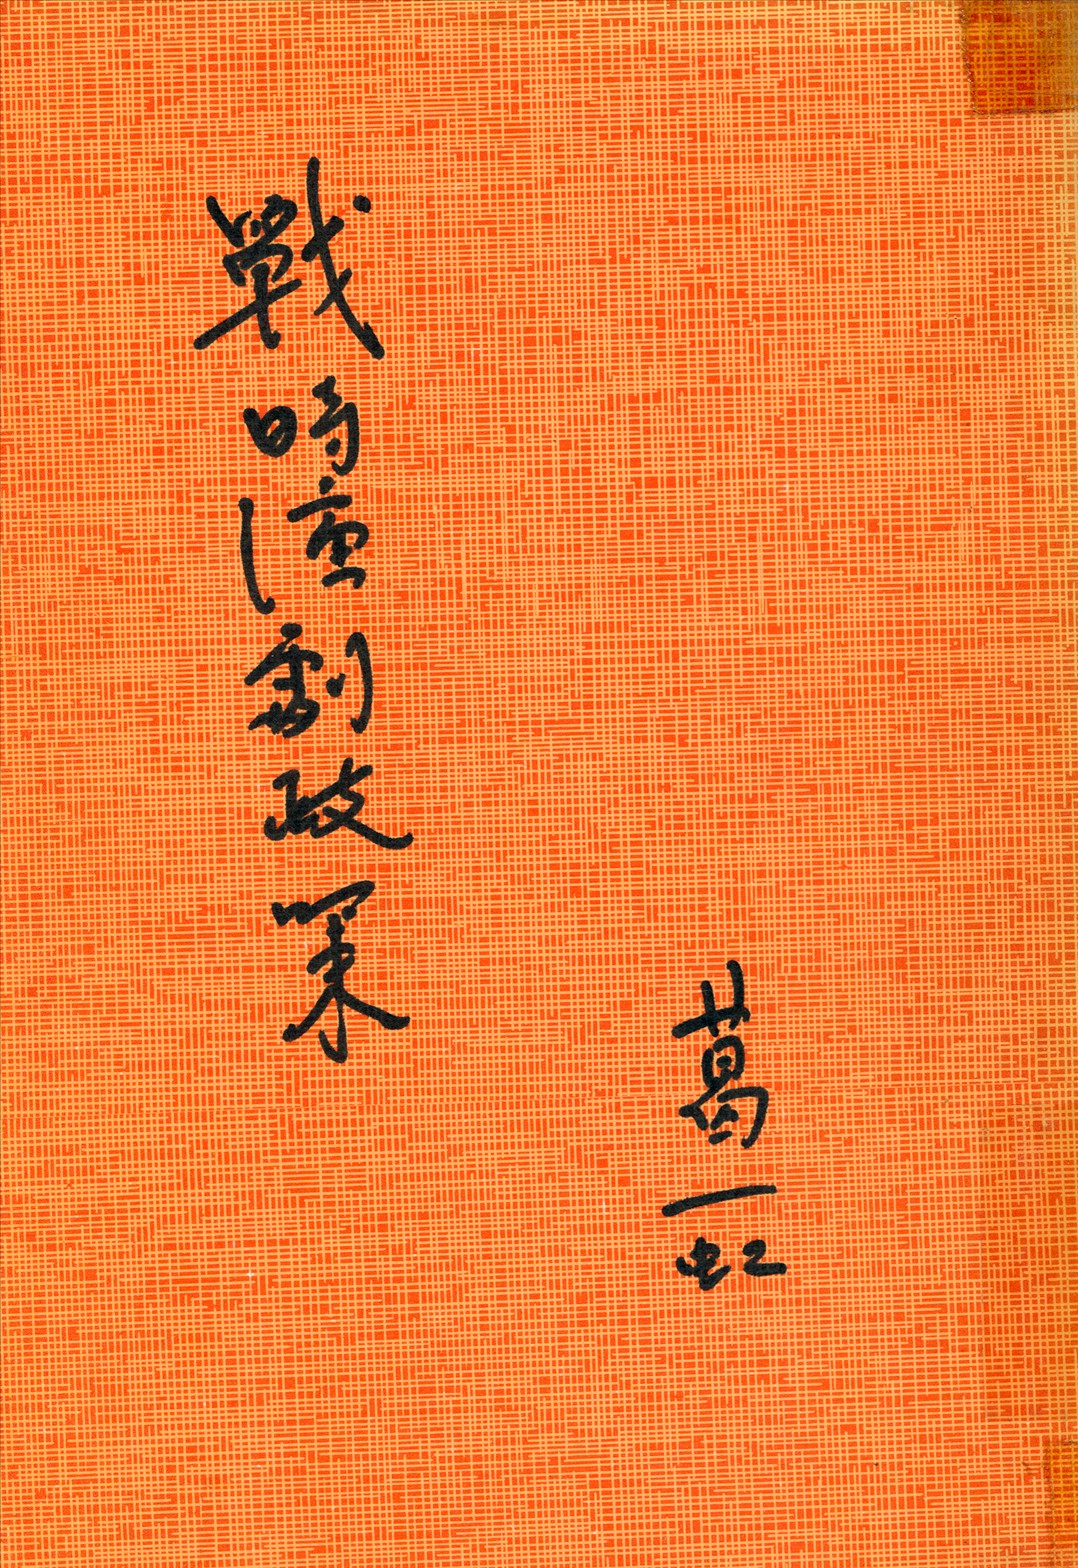 戰時演劇政策
葛一虹